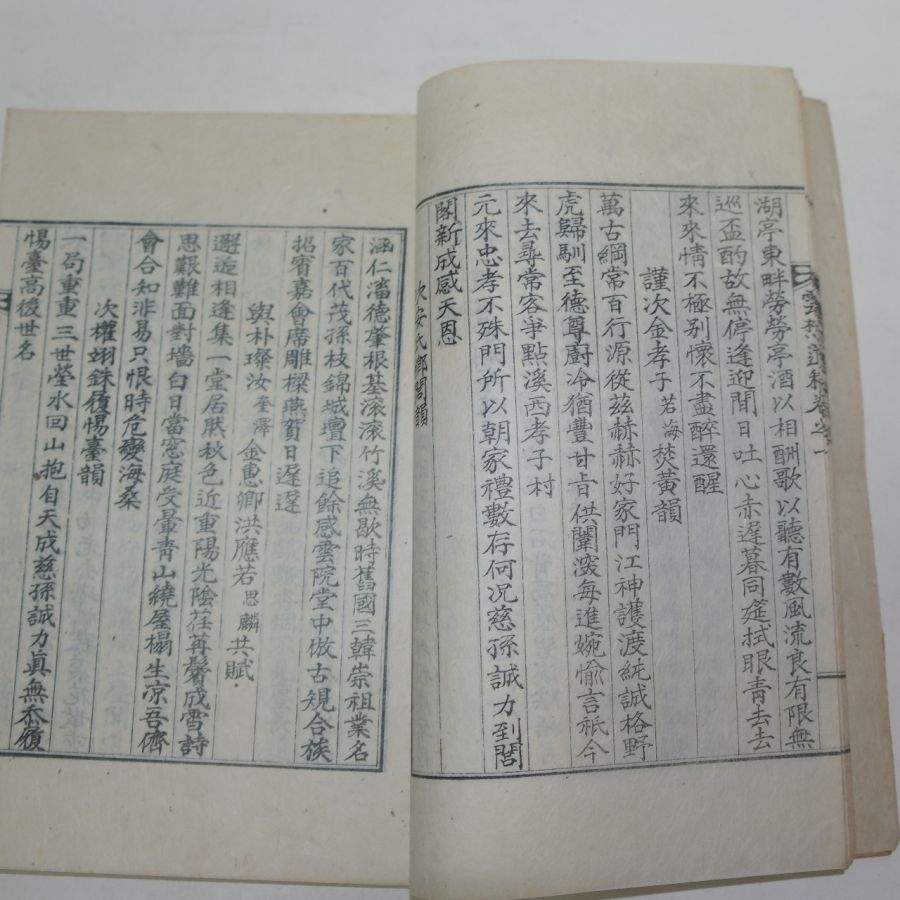 湖亭東畔勞勞亭酒以相酬歌以聽有數風流良有限無
巡盃酌故無停逢迎間日吐心赤遲暮同筵拭眼靑去去
來來情不極別懷不盡醉還醒
謹次金孝子若海焚黃韻
萬古綱常百行源從茲赫赫好家門江神護渡純誠格野
虎歸馴至德尊廚冷猶豐甘旨供闈深每進婉愉言秖今
來去尋常客筆點溪西孝子村
次安氏鄕閭韻
元來忠孝不殊門所以朝家禮數存何況慈孫誠力到閭
閣新成感天恩
涵仁潘德肇根基滾滾竹溪無歇時舊國三韓崇祖業名
家百代茂孫枝錦城壇下追餘感雲院堂中倣古規合族
招賓嘉會席雕樑燕賀日遲遲
與朴璨汝奎澤金惠卿洪應若思麟共賦
邂逅相逢集一堂居然秋色近重陽光陰荏苒鬢成雪詩
思艱難面對墻白日當窓庭受暈靑山繞屋榻生凉吾儕
會合知非易只恨時危變海桑
次權翊銖履惕臺韻
一局重重三世塋水回山抱自天成慈孫誠力眞無忝履
惕臺高後世名